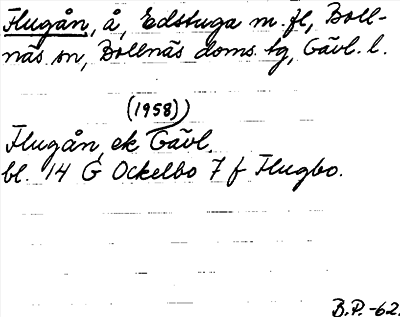 Flugån, å, Edstuga m. fl, Boll-
näs sn, Bollnäs doms. tg, Gävl. l.
(1958)
Flugån, ek Gävl.
bl. 14 G Ockelbo 7 f Flugbo.
B.P. -62.